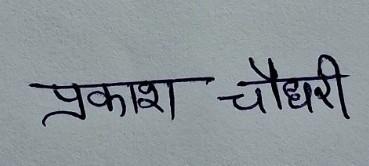 प्रकाश चौधरी